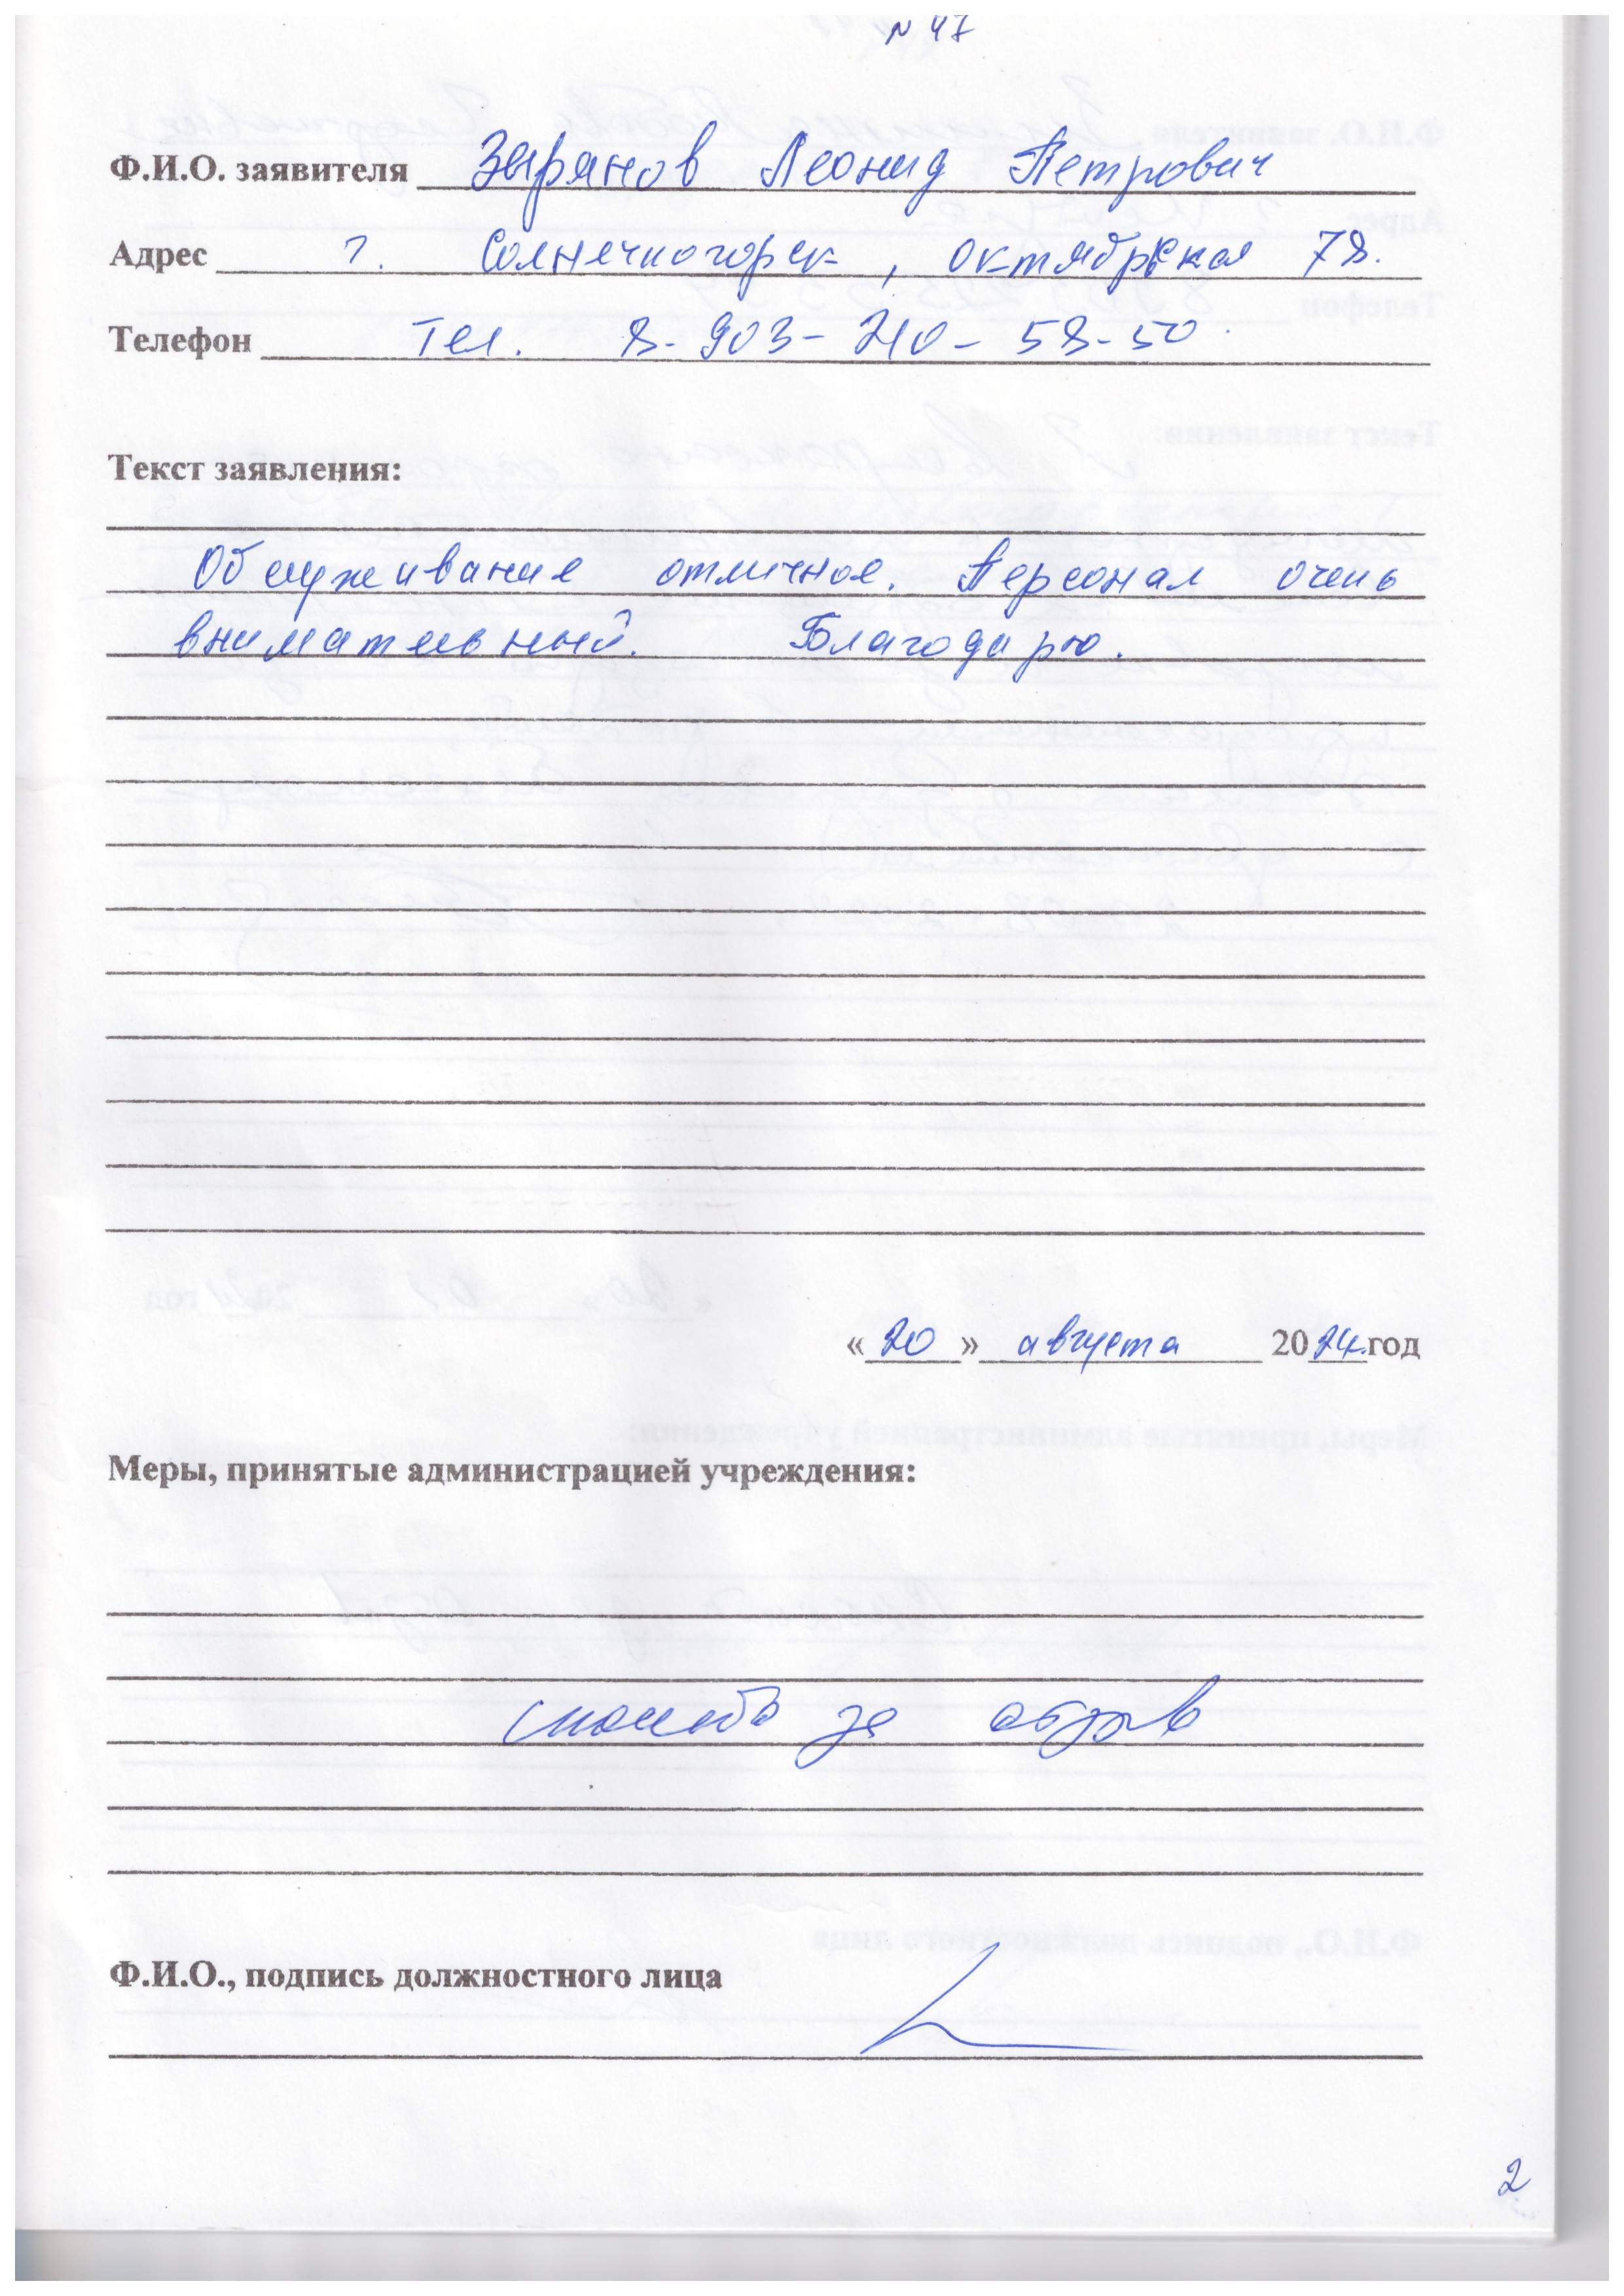 N 47
Ф.И.О. заявителя Зырянов Леонид Петрович
Адрес г. Солнечногорск, Октябрьская 78.
Телефон тел. 8-903-210-58-50.
Текст заявления:
Обслуживание отличное. Персонал очень
внимательный. Благодарю.
«20» августа 2024.год
Меры, принятые администрацией учреждения:
спасибо за отзыв
Ф.И.О., подпись должностного лица
2